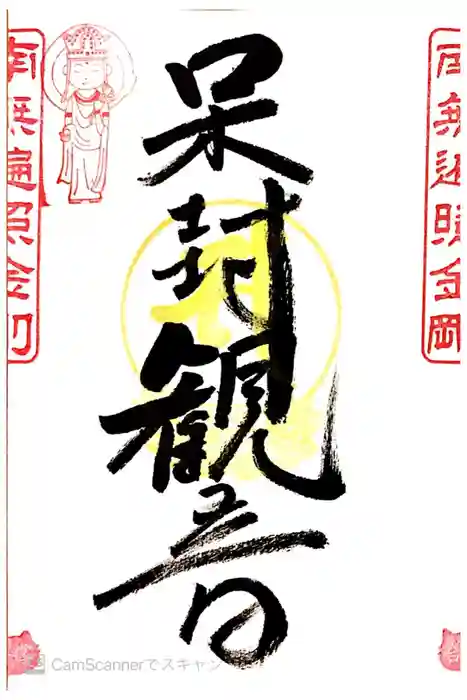 南無遍照金剛
呆封観音
南無遍照金剛
CamScannerでスキャン